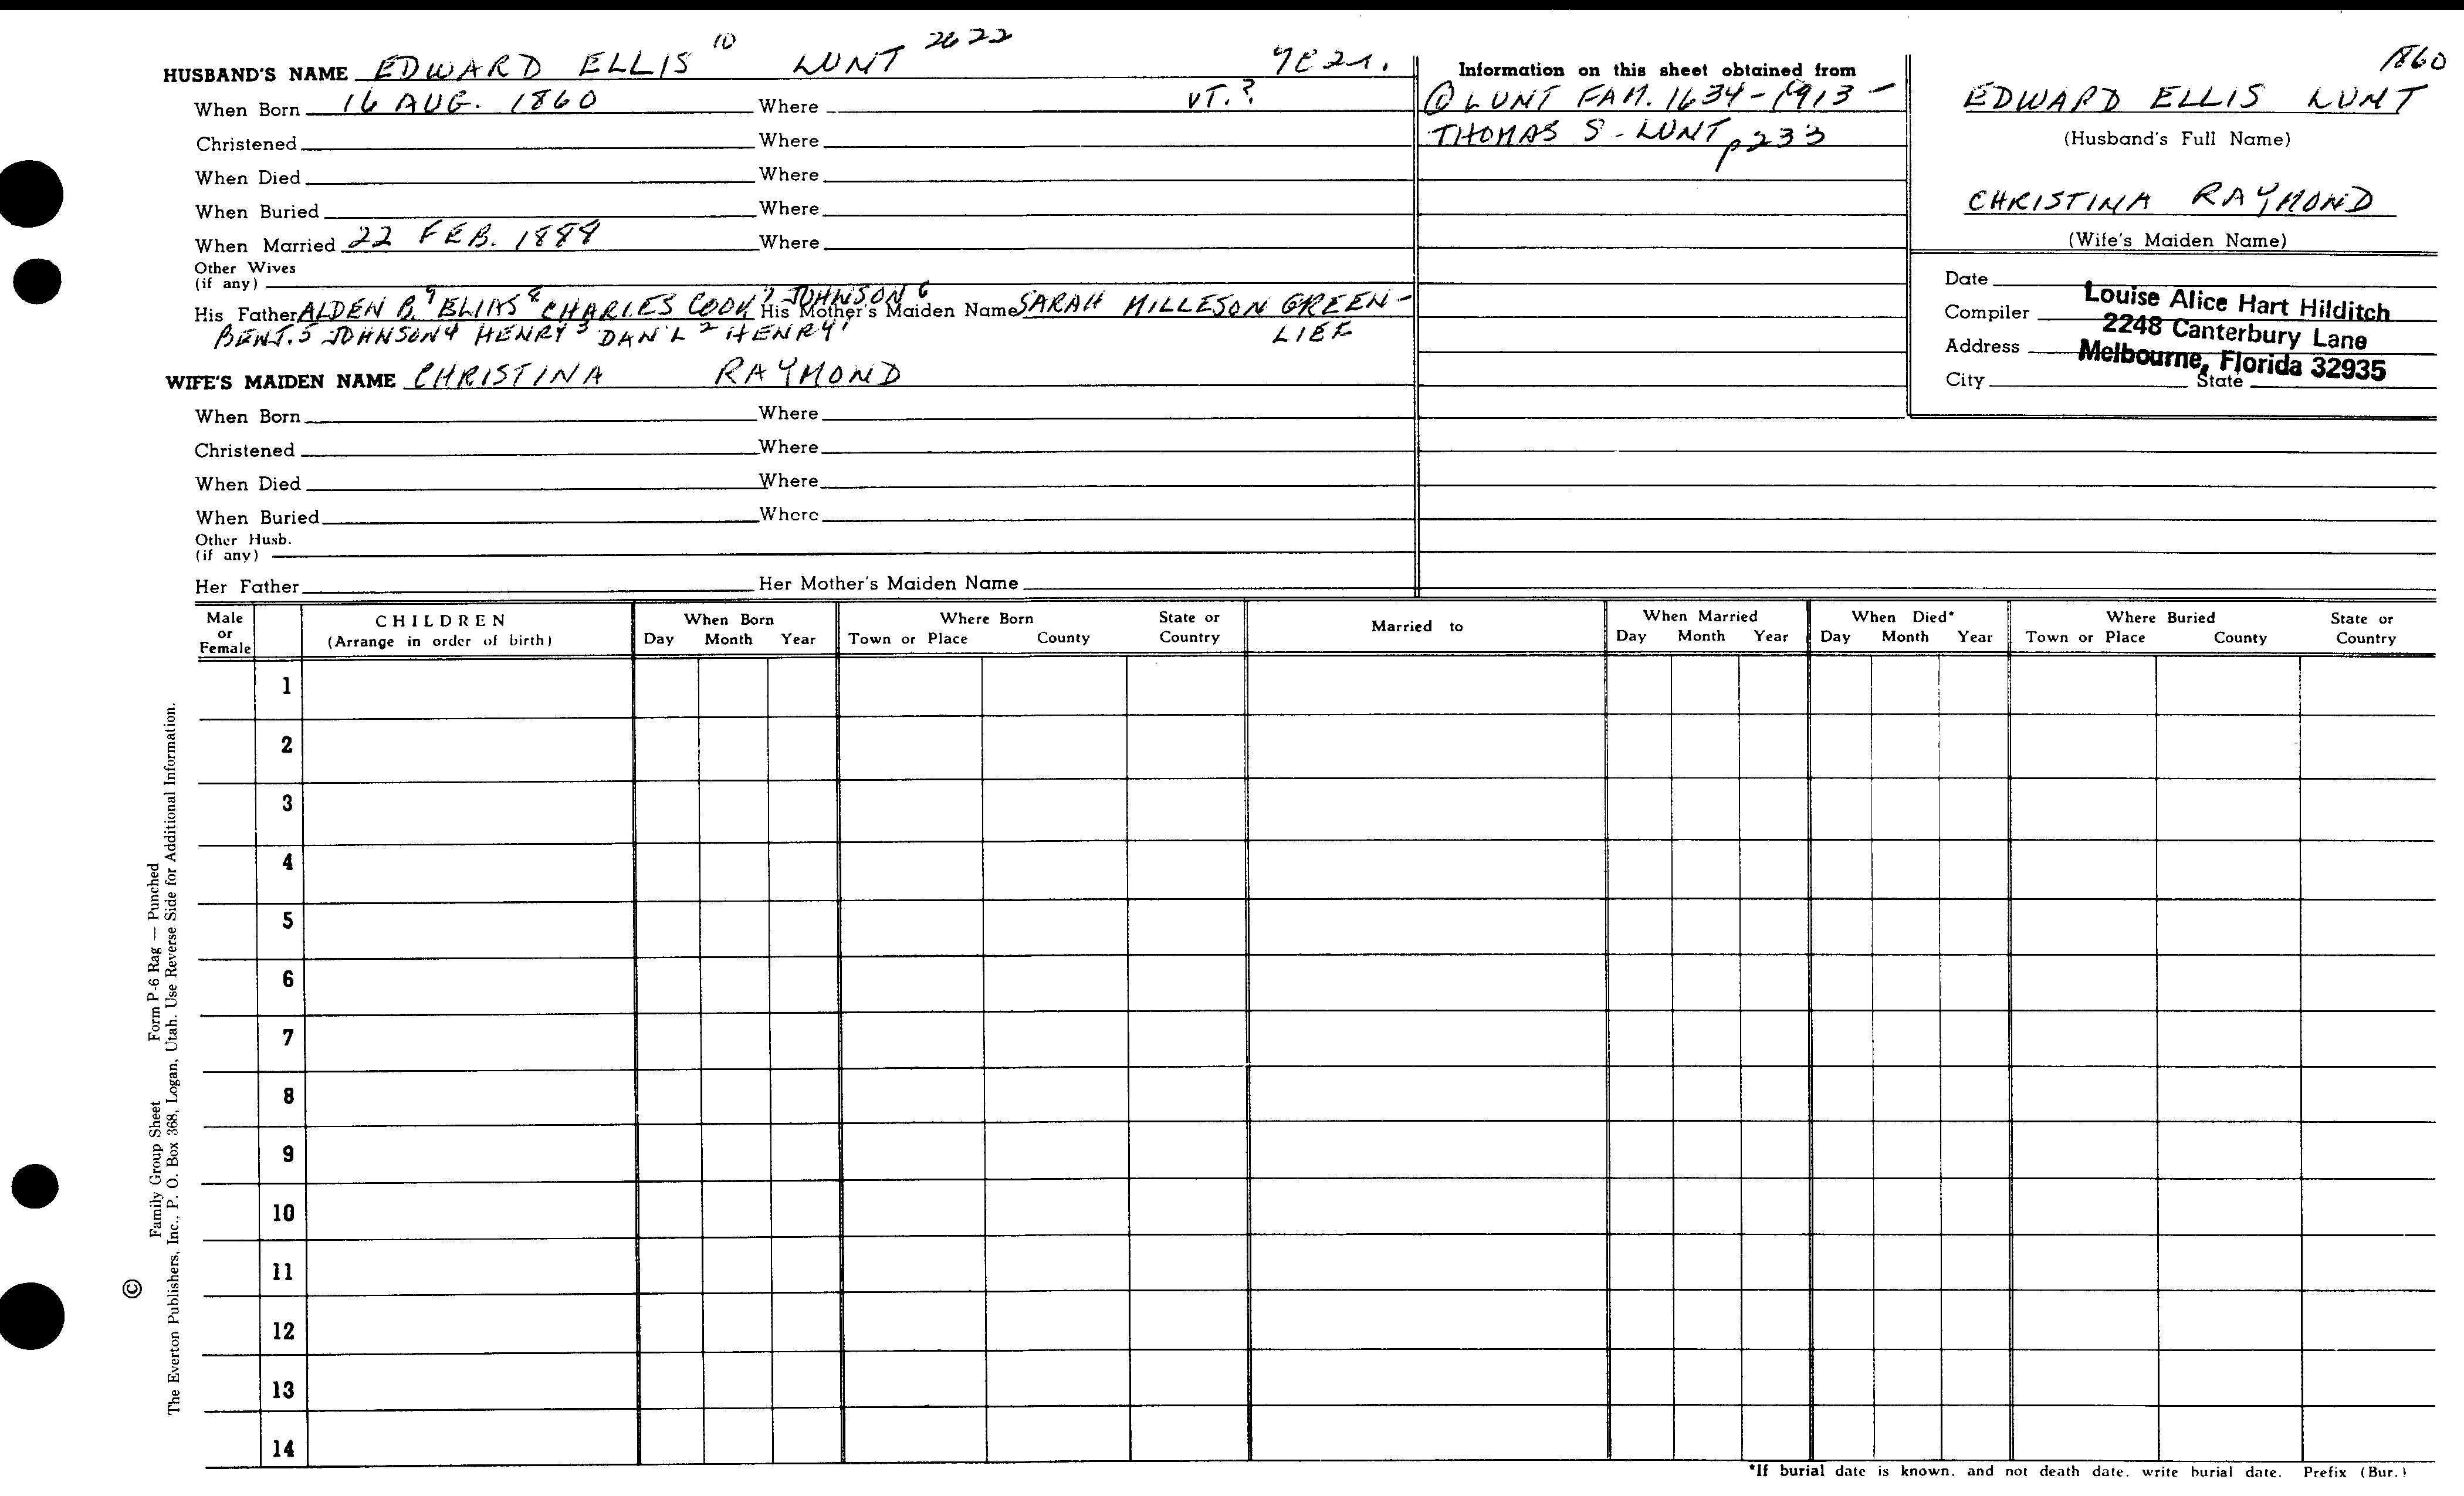 HUSBAND'S NAME EDWARD ELLIS 10 LUNT 2622
When Born 16 AUG. 1860 Where VT.?
Christened Where
When Died Where
When Buried Where
When Married 22 FEB. 1888 Where
Other Wives
(if any)
His Father ALDEN B. 9 ELIAS 8 CHARLES COOK 7 JOHNSON 6 His Mother's Maiden Name SARAH MILLESON GREEN-
BENJ. 5 JOHNSON 4 HENRY 3 DAN'L 2 HENRY 1 LIEF
WIFE'S MAIDEN NAME CHRISTINA RAYMOND
When Born Where
Christened Where
When Died Where
When Buried Where
Other Husb.
(if any)
Her Father Her Mother's Maiden Name
Information on this sheet obtained from
@ LUNT FAM. 1634-1913 -
THOMAS S. LUNT p 233
1860
EDWARD ELLIS LUNT
(Husband's Full Name)
CHRISTINA RAYMOND
(Wife's Maiden Name)
Date
Compiler Louise Alice Hart Hilditch
Address 2248 Canterbury Lane
City State Melbourne, Florida 32935
Male or Female CHILDREN (Arrange in order of birth) When Born Day Month Year Where Born Town or Place County State or Country Married to When Married Day Month Year When Died* Day Month Year Where Buried Town or Place County State or Country
1
2
3
4
5
6
7
8
9
10
11
12
13
14
*If burial date is known, and not death date, write burial date. Prefix (Bur.)
© Family Group Sheet Form P-6 Rag — Punched
The Everton Publishers, Inc., P. O. Box 368, Logan, Utah. Use Reverse Side for Additional Information.